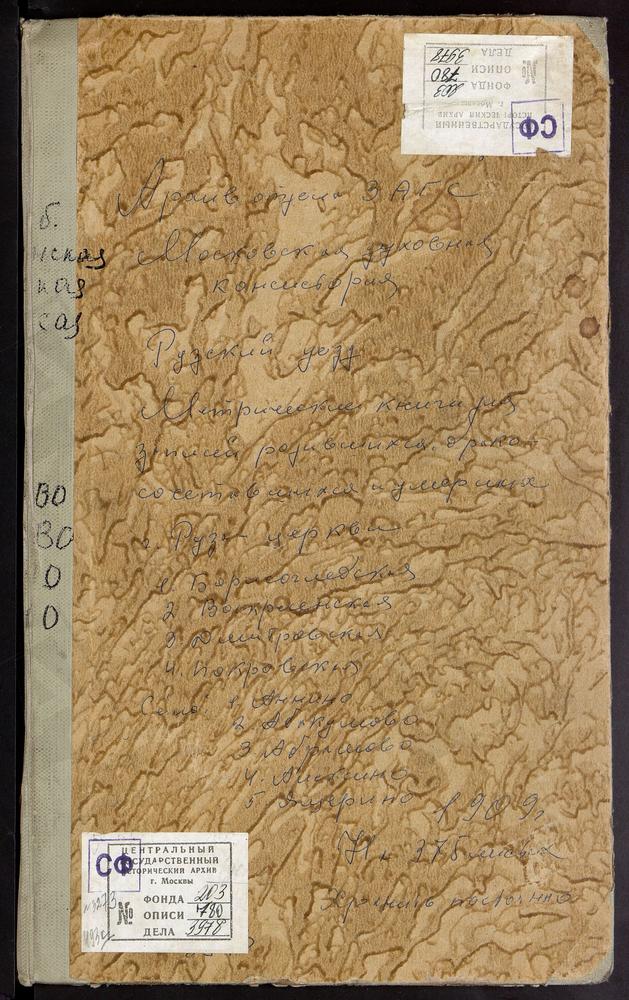 ГОСУДАРСТВЕННЫЙ
ИСТОРИЧЕСКИЙ АРХИВ
г. Москвы
ФОНДА 203
ОПИСИ 780
ДЕЛА 3978
№
СФ
Архив отдела ЗАГС
Московская духовная
консистория
Рузский уезд
Метрические книги для
записей родившихся, брако-
сочетавшихся и умерших
г. Руза церкви
1. Борисоглебская
2 Воскресенская
3 Дмитровская
4. Покровская
Село: 1 Аннино
2. Аббакумово
3 Абрамово
4. Алексино
5. Ащерино
1909г
На 375 листах
Хранить постоянно
б.
нская
кая
кая
ВО
ВО
О
О
СФ
ЦЕНТРАЛЬНЫЙ
ГОСУДАРСТВЕННЫЙ
ИСТОРИЧЕСКИЙ АРХИВ
г. Москвы
ФОНДА 203
№ ОПИСИ 780
ДЕЛА 3978